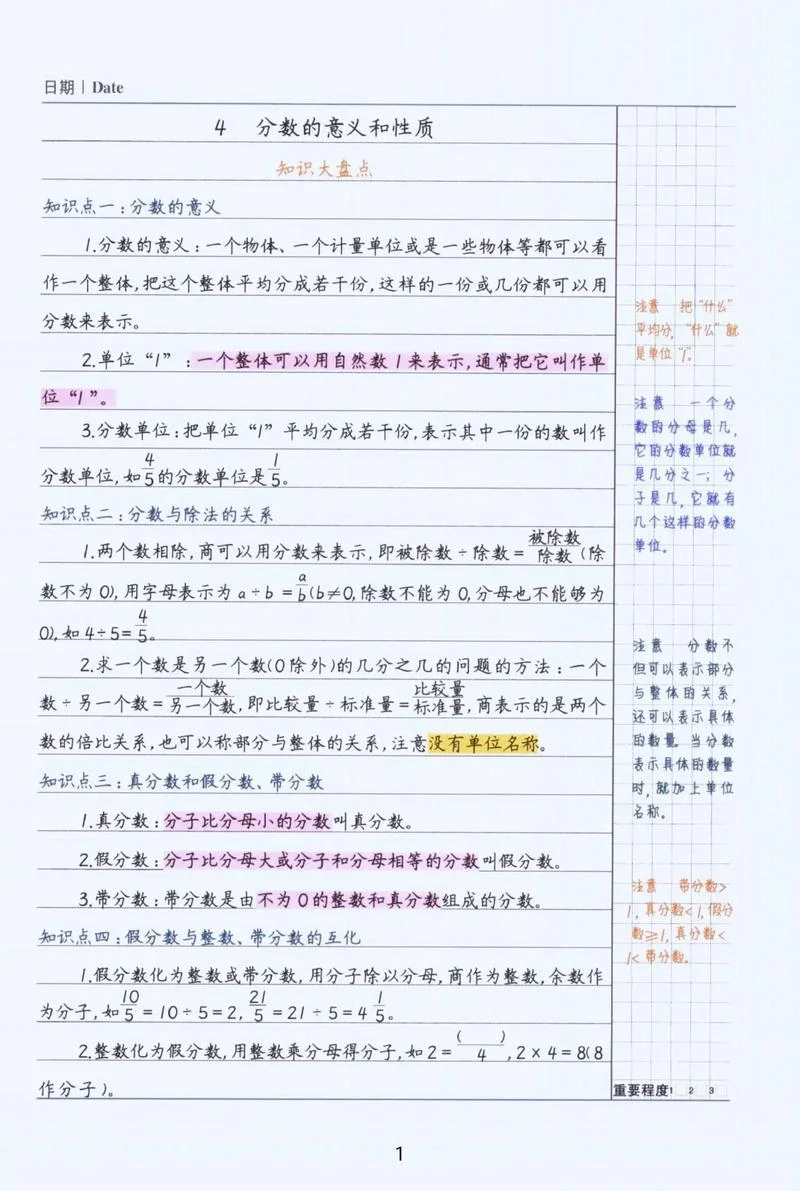 日期 | Date
4 分数的意义和性质
知识大盘点
知识点一：分数的意义
1.分数的意义：一个物体、一个计量单位或是一些物体等都可以看
作一个整体，把这个整体平均分成若干份，这样的一份或几份都可以用
分数来表示。
2.单位“1”：一个整体可以用自然数1来表示，通常把它叫作单
位“1”。
3.分数单位：把单位“1”平均分成若干份，表示其中一份的数叫作
分数单位，如4/5的分数单位是1/5。
知识点二：分数与除法的关系
1.两个数相除，商可以用分数来表示，即被除数÷除数=被除数/除数(除
数不为0)，用字母表示为a÷b=a/b(b≠0，除数不能为0，分母也不能够为
0)，如4÷5=4/5。
2.求一个数是另一个数(0除外)的几分之几的问题的方法：一个
数÷另一个数=一个数/另一个数，即比较量÷标准量=比较量/标准量，商表示的是两个
数的倍比关系，也可以称部分与整体的关系，注意没有单位名称。
知识点三：真分数和假分数、带分数
1.真分数：分子比分母小的分数叫真分数。
2.假分数：分子比分母大或分子和分母相等的分数叫假分数。
3.带分数：带分数是由不为0的整数和真分数组成的分数。
知识点四：假分数与整数、带分数的互化
1.假分数化为整数或带分数，用分子除以分母，商作为整数，余数作
为分子，如10/5=10÷5=2，21/5=21÷5=4 1/5。
2.整数化为假分数，用整数乘分母得分子，如2=( )/4，2×4=8(8
作分子)。
注意 把“什么”
平均分，“什么”就
是单位“1”。
注意 一个分
数的分母是几，
它的分数单位就
是几分之一；分
子是几，它就有
几个这样的分数
单位。
注意 分数不
但可以表示部分
与整体的关系，
还可以表示具体
的数量。当分数
表示具体的数量
时，就加上单位
名称。
注意 带分数>
1，真分数<1，假分
数≥1，真分数<
1<带分数。
重要程度 1 2 3
1